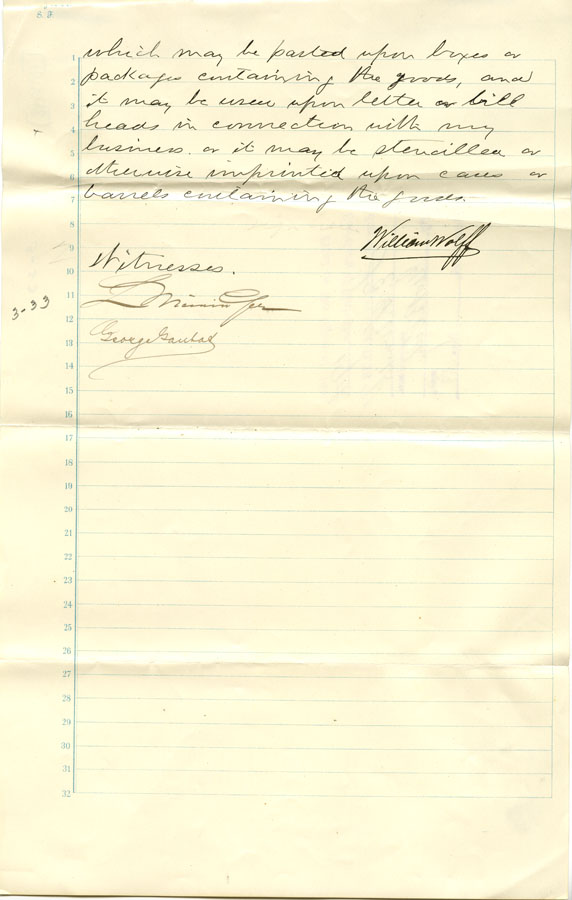 which may be pasted upon boxes or
packages containing the goods, and
it may be used upon letter or bill
heads in connection with my
business or it may be stencilled or
otherwise imprinted upon cases or
barrels containing the goods.
William Wolff
Witnesses.
3-33
George
1
2
3
4
5
6
7
8
9
10
11
12
13
14
15
16
17
18
19
20
21
22
23
24
25
26
27
28
29
30
31
32